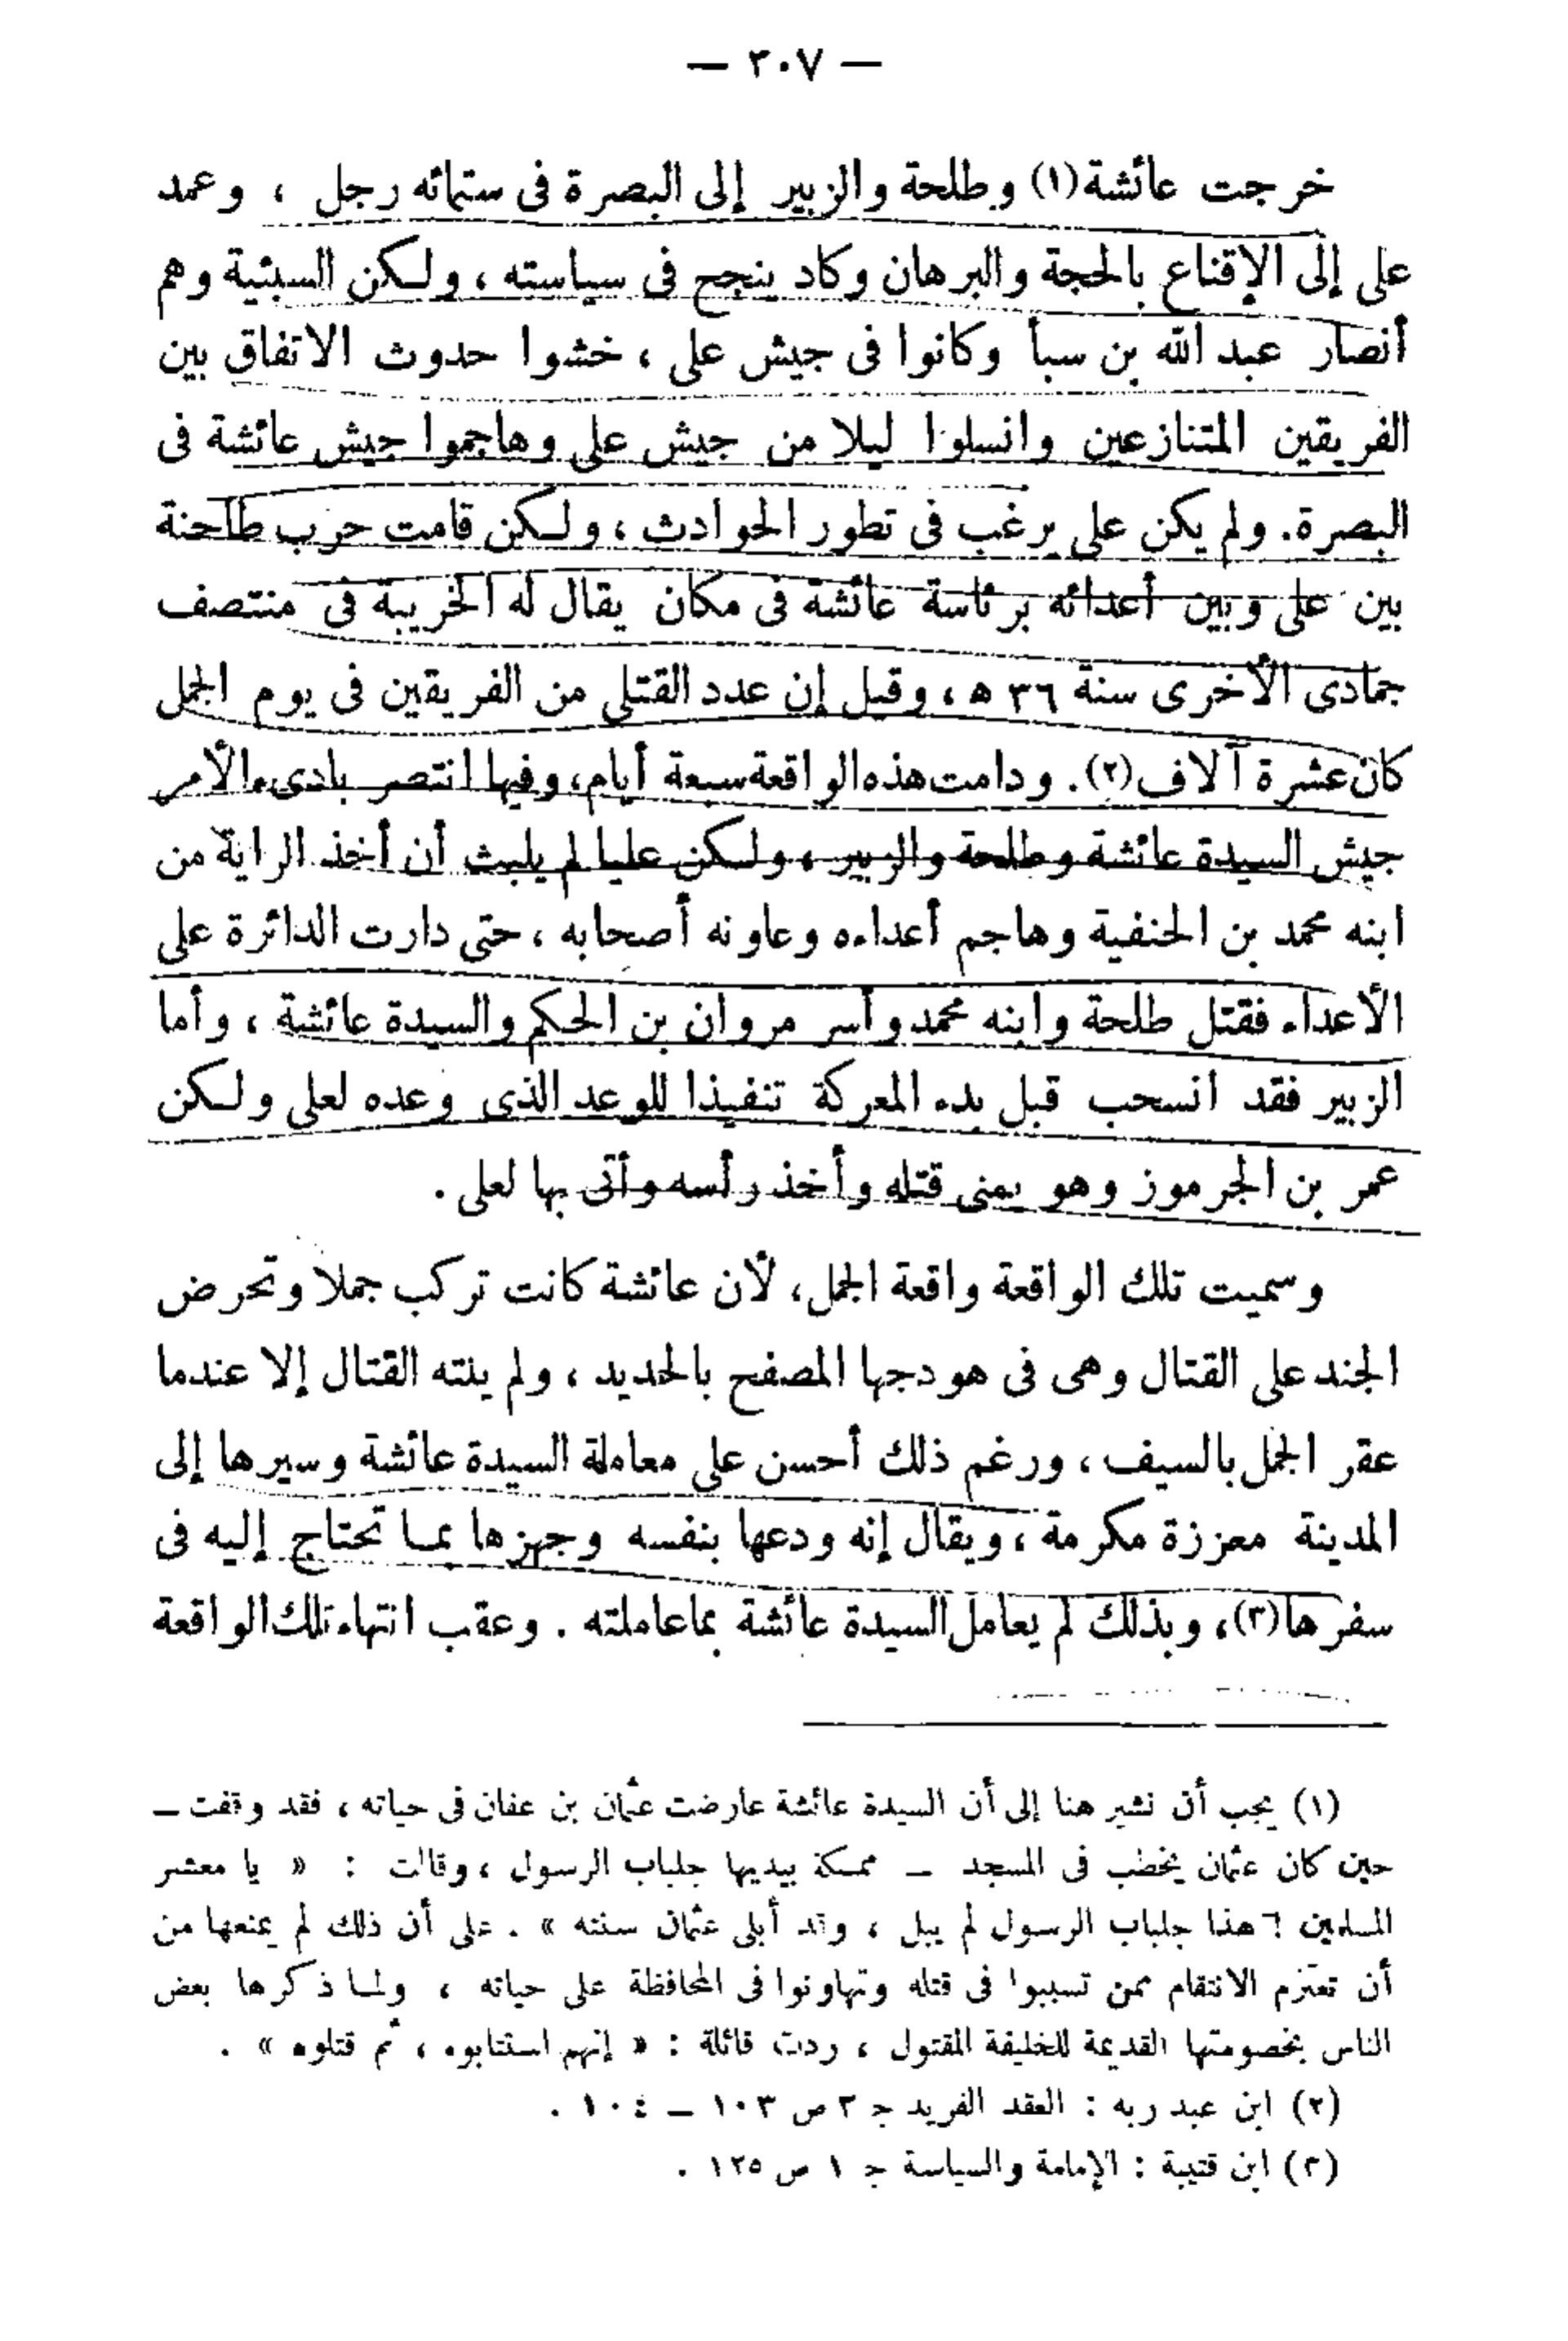 — ٣٠٧ —
خرجت عائشة (١) وطلحة والزبير إلى البصرة فى ستمائه رجل ، وعمد
على إلى الإقناع بالحجة والبرهان وكاد ينجح فى سياسته ، ولكن السبئية وهم
أنصار عبد الله بن سبأ وكانوا فى جيش على ، خشوا حدوث الاتفاق بين
الفريقين المتنازعين وانسلوا ليلا من جيش على وهاجموا جيش عائشة فى
البصرة. ولم يكن على يرغب فى تطور الحوادث ، ولكن قامت حرب طاحنة
بين على وبين أعدائه برئاسة عائشة فى مكان يقال له الخريبة فى منتصف
جمادى الأخرى سنة ٣٦ ه ، وقيل إن عدد القتلى من الفريقين فى يوم الجمل
كان عشرة آلاف (٢). ودامت هذه الواقعة سبعة أيام، وفيها انتصر بادىء الأمر
جيش السيدة عائشة وطلحة والزبير ، ولكن عليا لم يلبث أن أخذ الراية من
ابنه محمد بن الحنفية وهاجم أعداءه وعاونه أصحابه ، حتى دارت الدائرة على
الأعداء فقتل طلحة وابنه محمد وأسر مروان بن الحكم والسيدة عائشة ، وأما
الزبير فقد انسحب قبل بدء المعركة تنفيذا للوعد الذى وعده لعلى ولكن
عمر بن الجرموز وهو يمنى قتله وأخذ رأسه وأتى بها لعلى .
وسميت تلك الواقعة واقعة الجمل، لأن عائشة كانت تركب جملا وتحرض
الجند على القتال وهى فى هودجها المصفح بالحديد ، ولم ينته القتال إلا عندما
عقر الجمل بالسيف ، ورغم ذلك أحسن على معاملة السيدة عائشة وسيرها إلى
المدينة معززة مكرمة ، ويقال إنه ودعها بنفسه وجهزها بما تحتاج إليه فى
سفرها (٣)، وبذلك لم يعامل السيدة عائشة بما عاملته . وعقب انتهاء تلك الواقعة
(١) يجب أن نشير هنا إلى أن السيدة عائشة عارضت عثمان بن عفان فى حياته ، فقد وقفت —
حين كان عثمان يخطب فى المسجد — ممسكة بيديها جلباب الرسول ، وقالت : « يا معشر
المسلمين ! هذا جلباب الرسول لم يبل ، وقد أبلى عثمان سنته » . على أن ذلك لم يمنعها من
أن تعتزم الانتقام ممن تسببوا فى قتله وتهاونوا فى المحافظة على حياته ، ولما ذكرها بعض
الناس بخصومتها القديمة للخليفة المقتول ، ردت قائلة : « إنهم استتابوه ، ثم قتلوه » .
(٢) ابن عبد ربه : العقد الفريد ج ٣ ص ١٠٣ — ١٠٤ .
(٣) ابن قتيبة : الإمامة والسياسة ج ١ ص ١٢٥ .